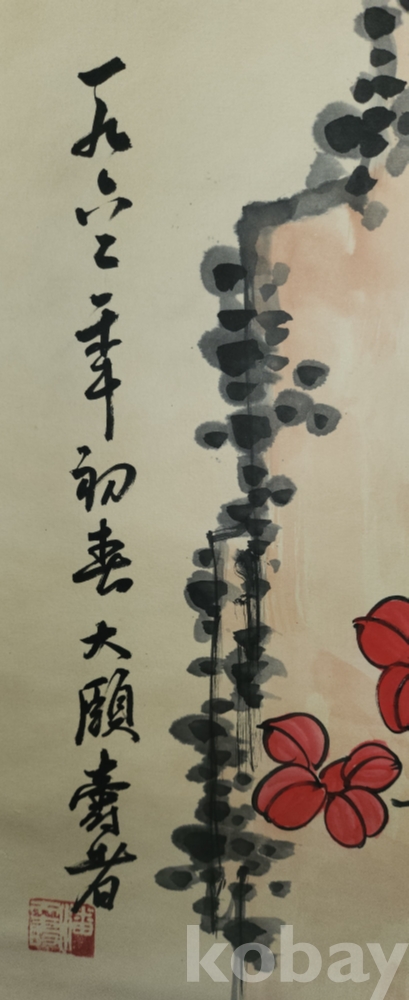 一九六二年初春大頤壽者
kobay